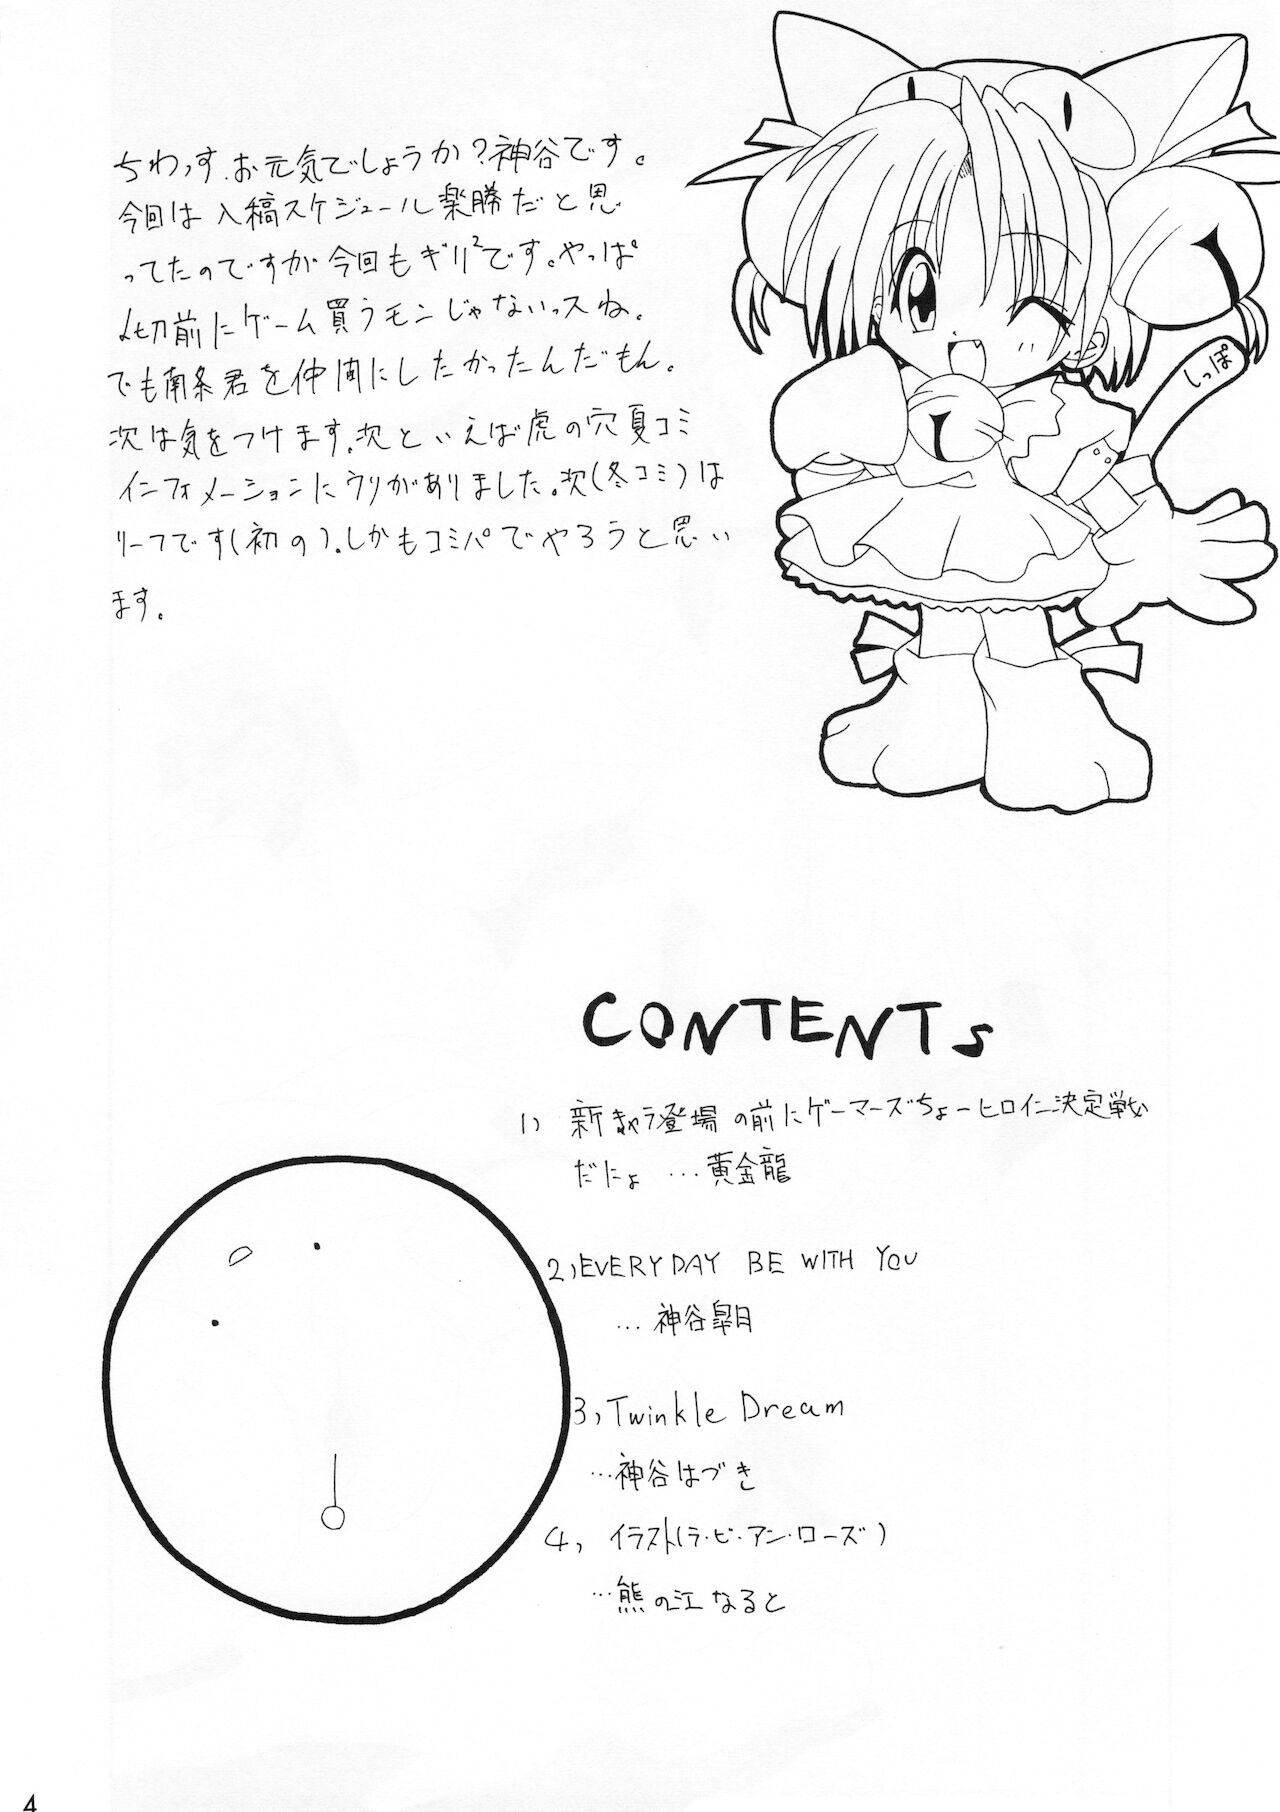 ちわっす.お元気でしょうか？神谷です。
今回は入稿スケジュール楽勝だと思
ってたのですが今回もギリ²です。やっぱ
〆切前にゲーム買うモンじゃないっスね。
でも南条君を仲間にしたかったんだもん。
次は気をつけます.次といえば虎の穴夏コミ
インフォメーションにウリがありました。次(冬コミ)は
リーフです(初の).しかもコミパでやろうと思い
ます。
しっぽ
CONTENTs
1) 新キャラ登場の前にゲーマーズちょーヒロイン決定戦
だにょ …黄金龍
2, EVERYDAY BE WITH YOU
… 神谷皐月
3, Twinkle Dream
…神谷はづき
4, イラスト(ラ・ビ・アン・ローズ)
…熊の江なると
4